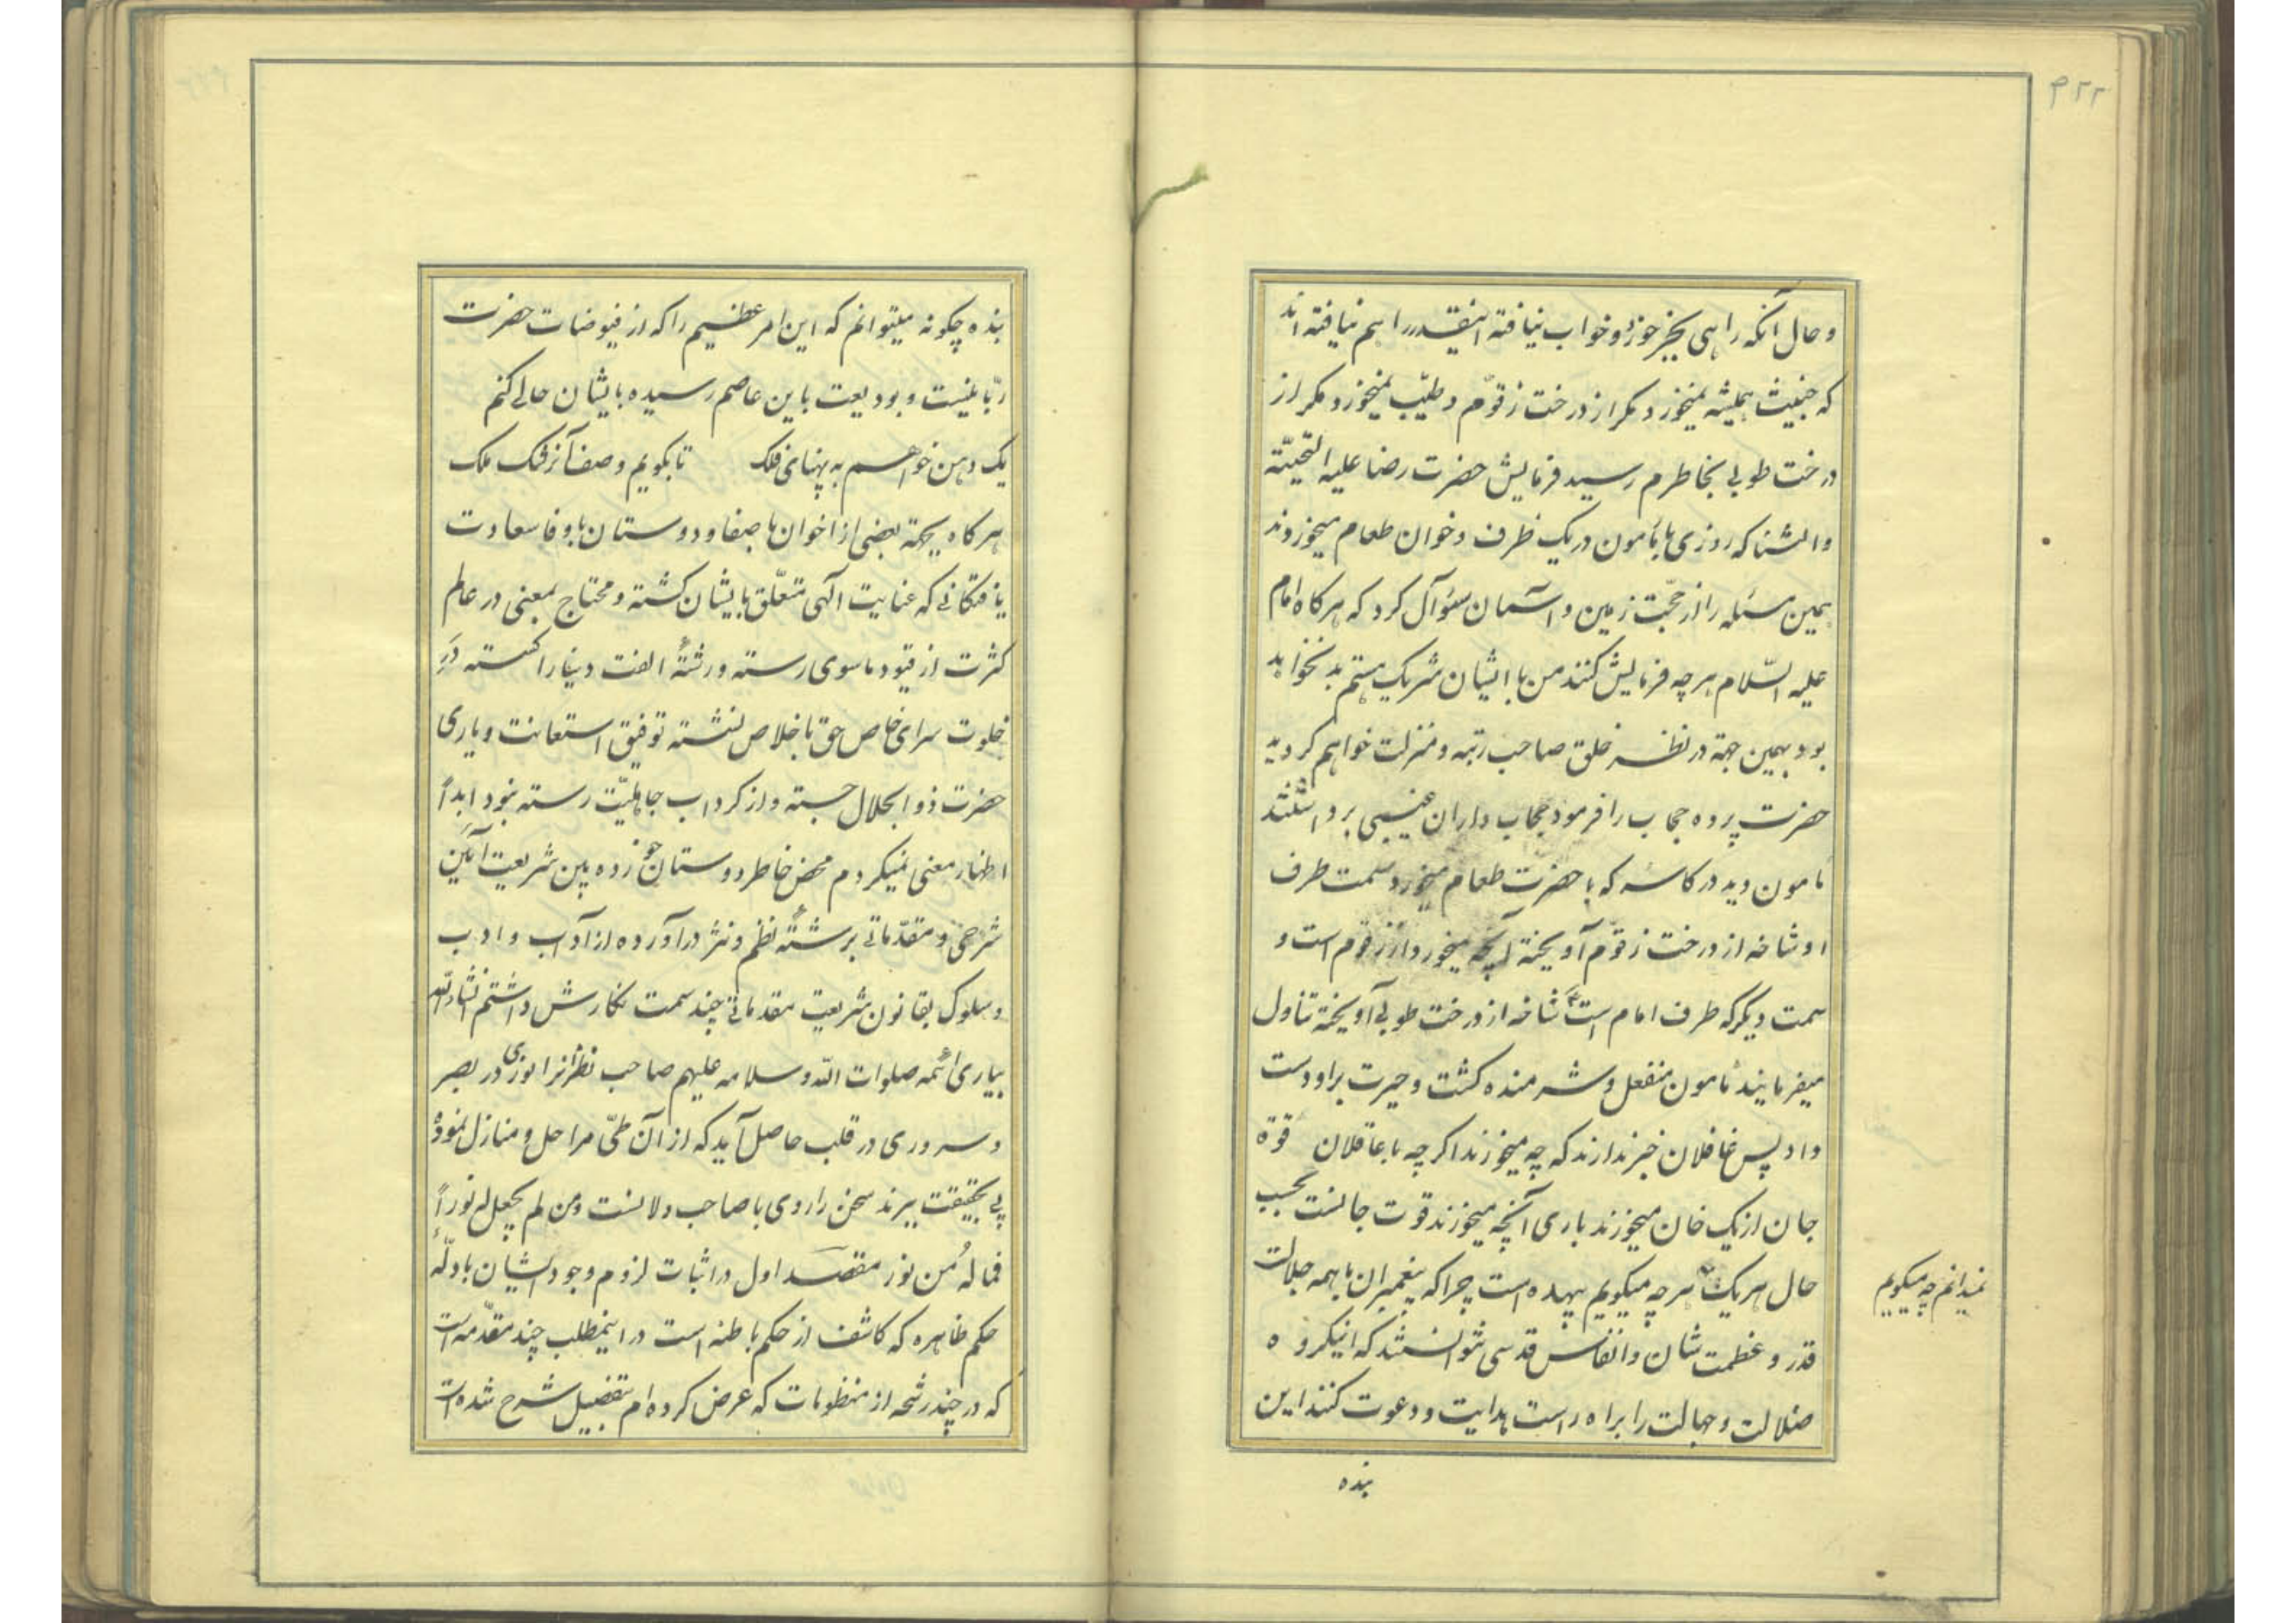 ۴۲۲
و حال آنکه راهی بجز خور و خواب نیافته اینقدر را هم نیافته اند
که خبیث همیشه نمیخورد مکر از درخت زقوّم و طیّب نمیخورد مکر از
درخت طوبی بخاطرم رسید فرمایش حضرت رضا علیه التحیّة
والثنا که روزی با مأمون در یک ظرف و خوان طعام میخوردند
همین مسئله را از حجّت زمین و آسمان سؤال کرد که هرکاه امام
علیه السّلام هرچه فرمایش کنند من با ایشان شریک هستم بد نخواهد
بود بهمین جهة در نظر خلق صاحب رتبه و منزلت خواهم کردید
حضرت پرده حجاب را فرمود حجاب داران غیبی برداشتند
مأمون دید در کاسه که با حضرت طعام میخورد سمت طرف
او شاخه از درخت زقوّم آویخته آنچه میخورد از زقوم است و
سمت دیکر که طرف امام است ع شاخه از درخت طوبی آویخته تناول
میفرمایند مأمون منفعل و شرمنده کشت و حیرت بر او دست
داد پس غافلان خبر ندارند که چه میخورند اکر چه با عاقلان قوة
جان از یک خان میخورند باری آنچه میخورند قوت جانست بحسب
حال هر یک هرچه میکویم بیهده است چرا که پیغمبران با همه جلالت
نمیدانم چه میکویم
قدر و عظمت شان و انفاس قدسی نتوانستند که اینکروه
ضلالت و جهالت را براه راست هدایت و دعوت کنند این
بنده
بنده چکونه میتوانم که این امر عظیم را که از فیوضات حضرت
ربّانیست و بودیعت باین عاصم رسیده بایشان حالی کنم
یک دهن خواهم به پهنای فلک تا بکویم وصف آن رشک ملک
هرکاه بجهة بعضی از اخوان با صفا و دوستان با وفا سعادت
یافتکانی که عنایت آلهی متعلّق بایشان کشته و محتاج بمعنی در عالم
کثرت از قیود ماسوی رسته و رشتهٔ الفت دنیا را کسسته در
خلوت سرای خاص حق باخلاص نشسته توفیق استعانت و یاری
حضرت ذوالجلال جسته و از کرداب جاهلیّت رسته نبود ابداً
اظهار معنی نمیکردم محض خاطر دوستان خود زده بین شریعت آئین
شرحی و مقدّماتی برشتهٔ نظم و نثر درآورده از آداب و ادب
و سلوک بقانون شریعت مقدماتی چند سمت نکارش داشتم انشاءالله
بیاری ائمه صلوات الله و سلامه علیهم صاحب نظرانرا نوری در بصر
و سروری در قلب حاصل آید که از آن طیّ مراحل و منازل نموده
پی بحقیقت برند سخن را روی با صاحب دلانست و من لم یجعل له نوراً
فماله من نور مقصد اول در اثبات لزوم وجود ایشان بادلّه
حکم ظاهره که کاشف از حکم باطنه است در اینمطلب چند مقدّمه است
که در چند رشحه از منظومات که عرض کرده ام بتفصیل شرح شده است